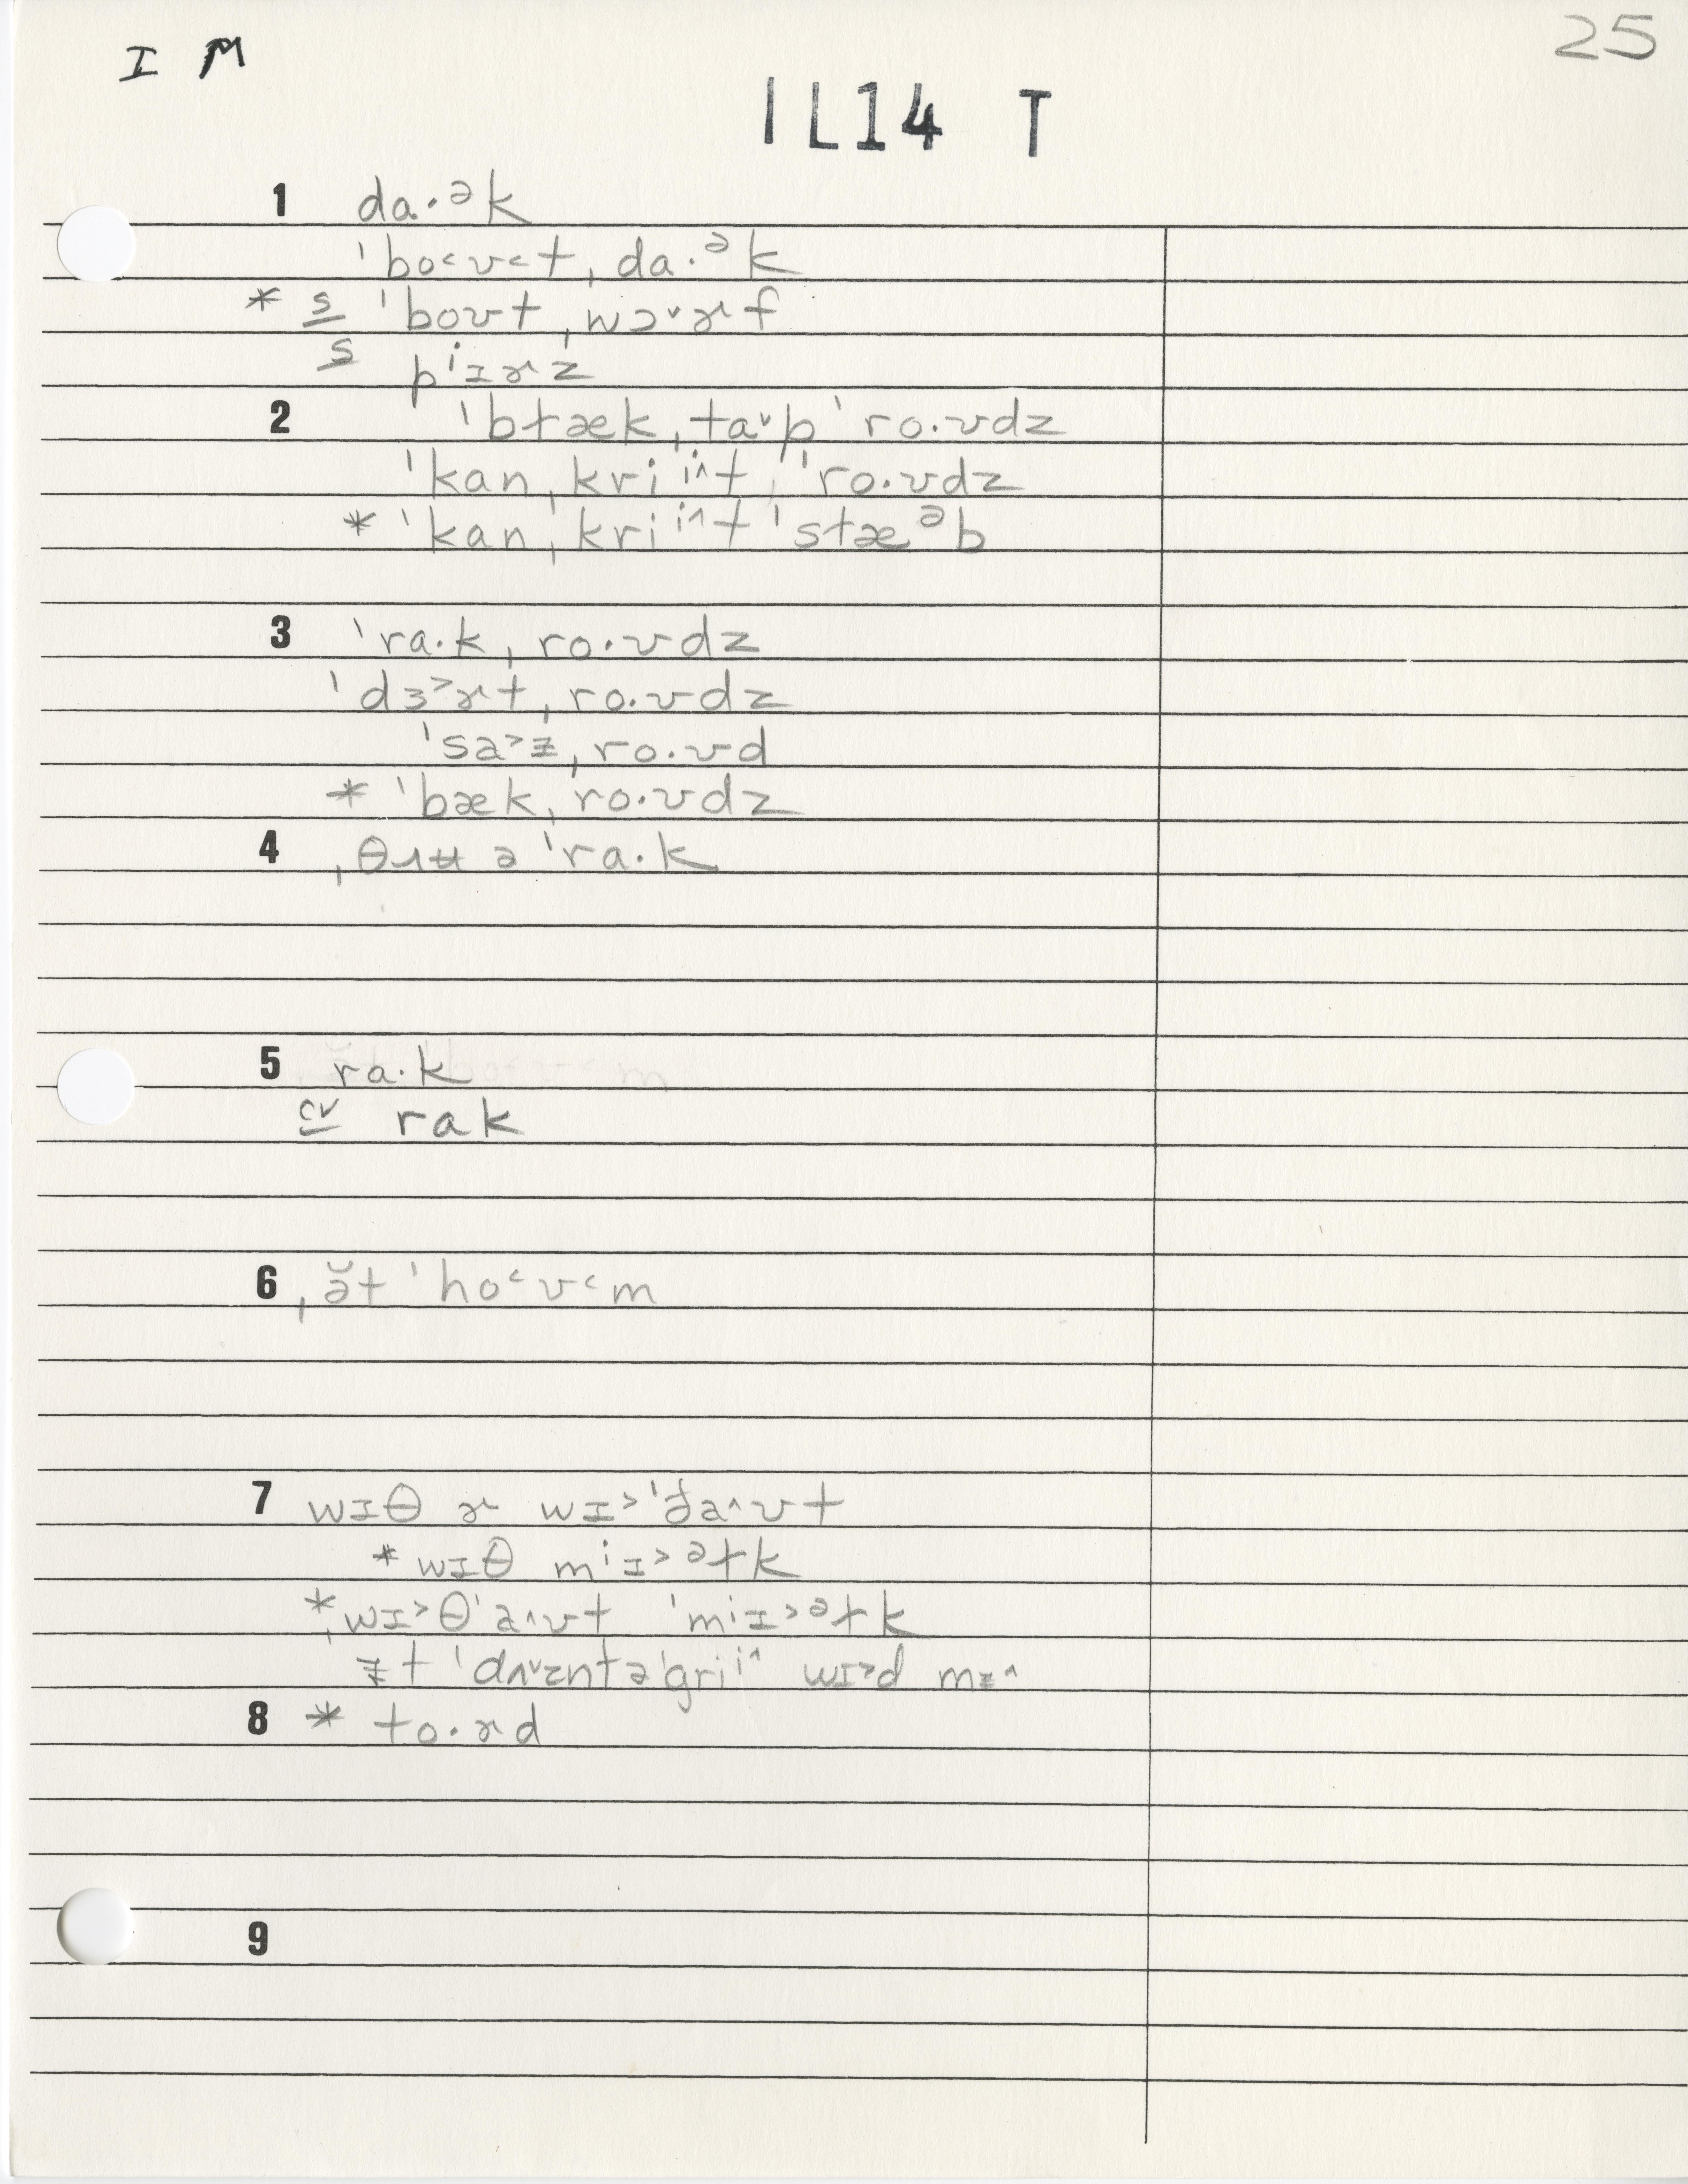 I M
25
IL14 T
1 da·ᵊk
ˈbo˂ʊ˂t ˌda·ᵊk
* s ˈboʊt ˌwɔ˅ɚf
s pⁱɪɚz
2 ˈblæk ˌta˅p ˈro·ʊdz
ˈkan ˌkriⁱ˄t ˈro·ʊdz
* ˈkan ˌkriⁱ˄t ˈstæᵊb
3 ˈra·k ˌro·ʊdz
ˈdɜ˃ɚt ˌro·ʊdz
ˈsa˃ɨ ˌro·ʊd
* ˈbæk ˌro·ʊdz
4 ˌθɹʉ ə ˈra·k
5 ra·k
≅ rak
6 ˌə̆t ˈho˂ʊ˂m
7 wɪθ ɚ wɪ˃ˈða˄ʊt
* wɪθ mⁱɪ˃ᵊɫk
* ˌwɪ˃θˈa˄ʊt ˈmⁱɪ˃ᵊɫk
ɨt ˈdʌ˅znt əˈgriⁱ˄ wɪ˃d mɨ˄
8 * to·ɚd
9